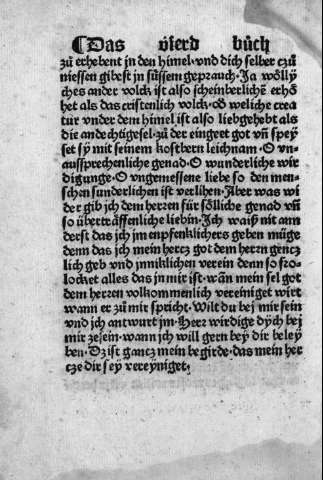 ¶Das vierd bůch
zů erhebent in den himel · vnd dich selber czů
niessen gibest in süssem geprauch · Ja wölly
ches ander volck ist also scheinberlichē erhö
het als das cristenlich volck · oď weliche crea
tur vnder dem himel ist also liebgehebt als
die andechtigesel · zů der eingeet got vñ spey
set sÿ mit seinem kostbern leichnam · O vn⸗
aussprechenliche genad · O wunderliche wir
digunge · O vngemessene liebe so den men⸗
schen sunderlichen ist verlihen · Aber was wi
der gib jch dem herren für sölliche genad vñ
so überträffenliche liebin · Jch waiß nit ann
derst das jch jm enpfenklichers geben müge
denn das jch mein hercz got dem herrn gencz
lich geb vnd jnniklichen verein denn so fro⸗
locket alles das jn mir ist · wāň mein sel got
dem herren volkommenlich vereiniget wirt
wann er zů mir spricht · Wilt du bej mir sein
vnd jch antwurt jm · Herr wirdige dÿch bej
mir zesein · wann jch will gern beÿ dir beley
ben · Dz ist gancz mein begirde · das mein her
cze dir seÿ vereÿniget ·